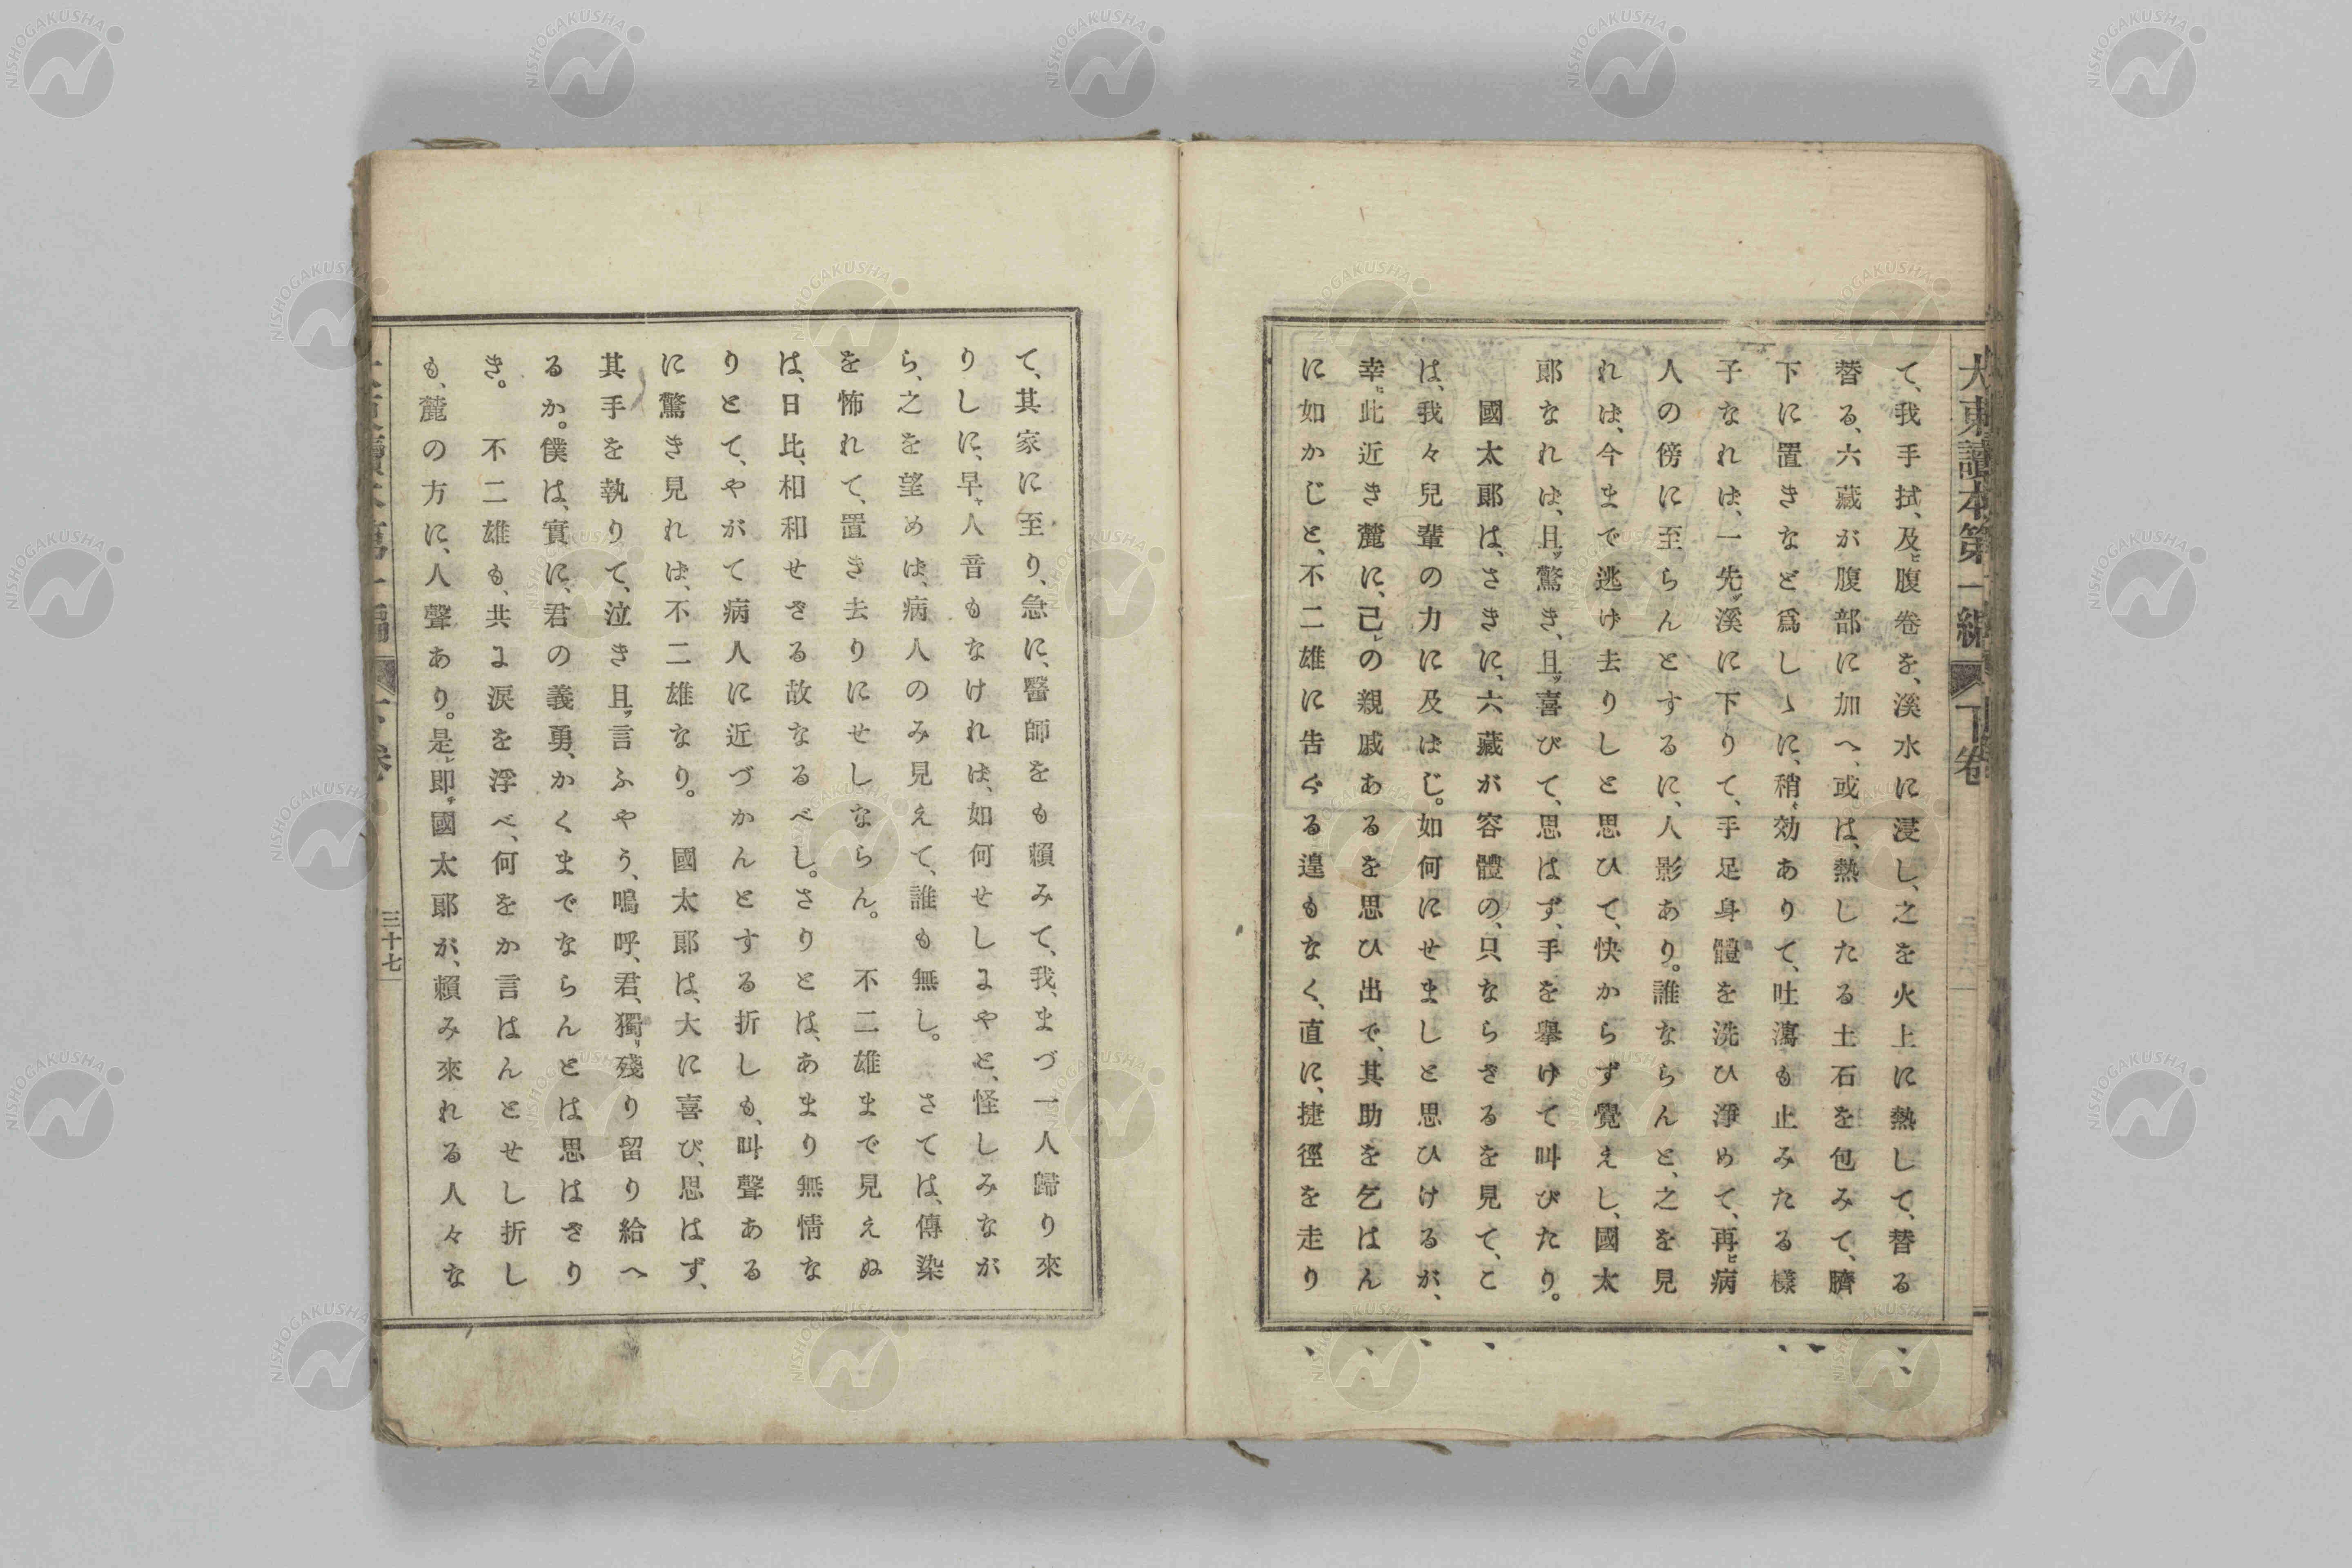 大東讀本第一編 下卷
て、我手拭、及ヒ腹卷を、溪水に浸し、之を火上に熱して、替る
替る、六藏が腹部に加へ、或は、熱したる土石を包みて、臍
下に置きなど爲しゝに、稍ヽ効ありて、吐瀉も止みたる樣
子なれは、一先ッ溪に下りて、手足身體を洗ひ淨めて、再ヒ病
人の傍に至らんとするに、人影あり。誰ならんと、之を見
れは、今まで逃け去りしと思ひて、快からず覺えし、國太
郞なれは、且ッ驚き、且ッ喜びて、思はず、手を擧けて叫びたり。
國太郞は、さきに、六藏が容體の、只ならさるを見て、こ
は、我々兒輩の力に及はじ。如何にせましと思ひけるが、
幸ニ此近き麓に、己レの親戚あるを思ひ出で、其助を乞はん
に如かじと、不二雄に告ぐる遑もなく、直に、捷徑を走り
て、其家に至り、急に、醫師をも賴みて、我、まづ一人歸り來
りしに、早ヤ人音もなけれは、如何せしまやと、怪しみなが
ら、之を望めは、病人のみ見えて、誰も無し。さては、傳染
を怖れて、置き去りにせしならん。不二雄まで見えぬ
は、日比、相和せさる故なるべし。さりとは、あまり無情な
りとて、やがて病人に近づかんとする折しも、叫聲ある
に驚き見れは、不二雄なり。國太郞は、大に喜び、思はず、
其手を執りて、泣き且ッ言ふやう、嗚呼、君、獨リ殘り留り給へ
るか。僕は、實に、君の義勇、かくまでならんとは思はさり
き。不二雄も、共ま涙を浮べ、何をか言はんとせし折し
も、麓の方に、人聲あり。是レ卽チ國太郞が、賴み來れる人々な
三十七